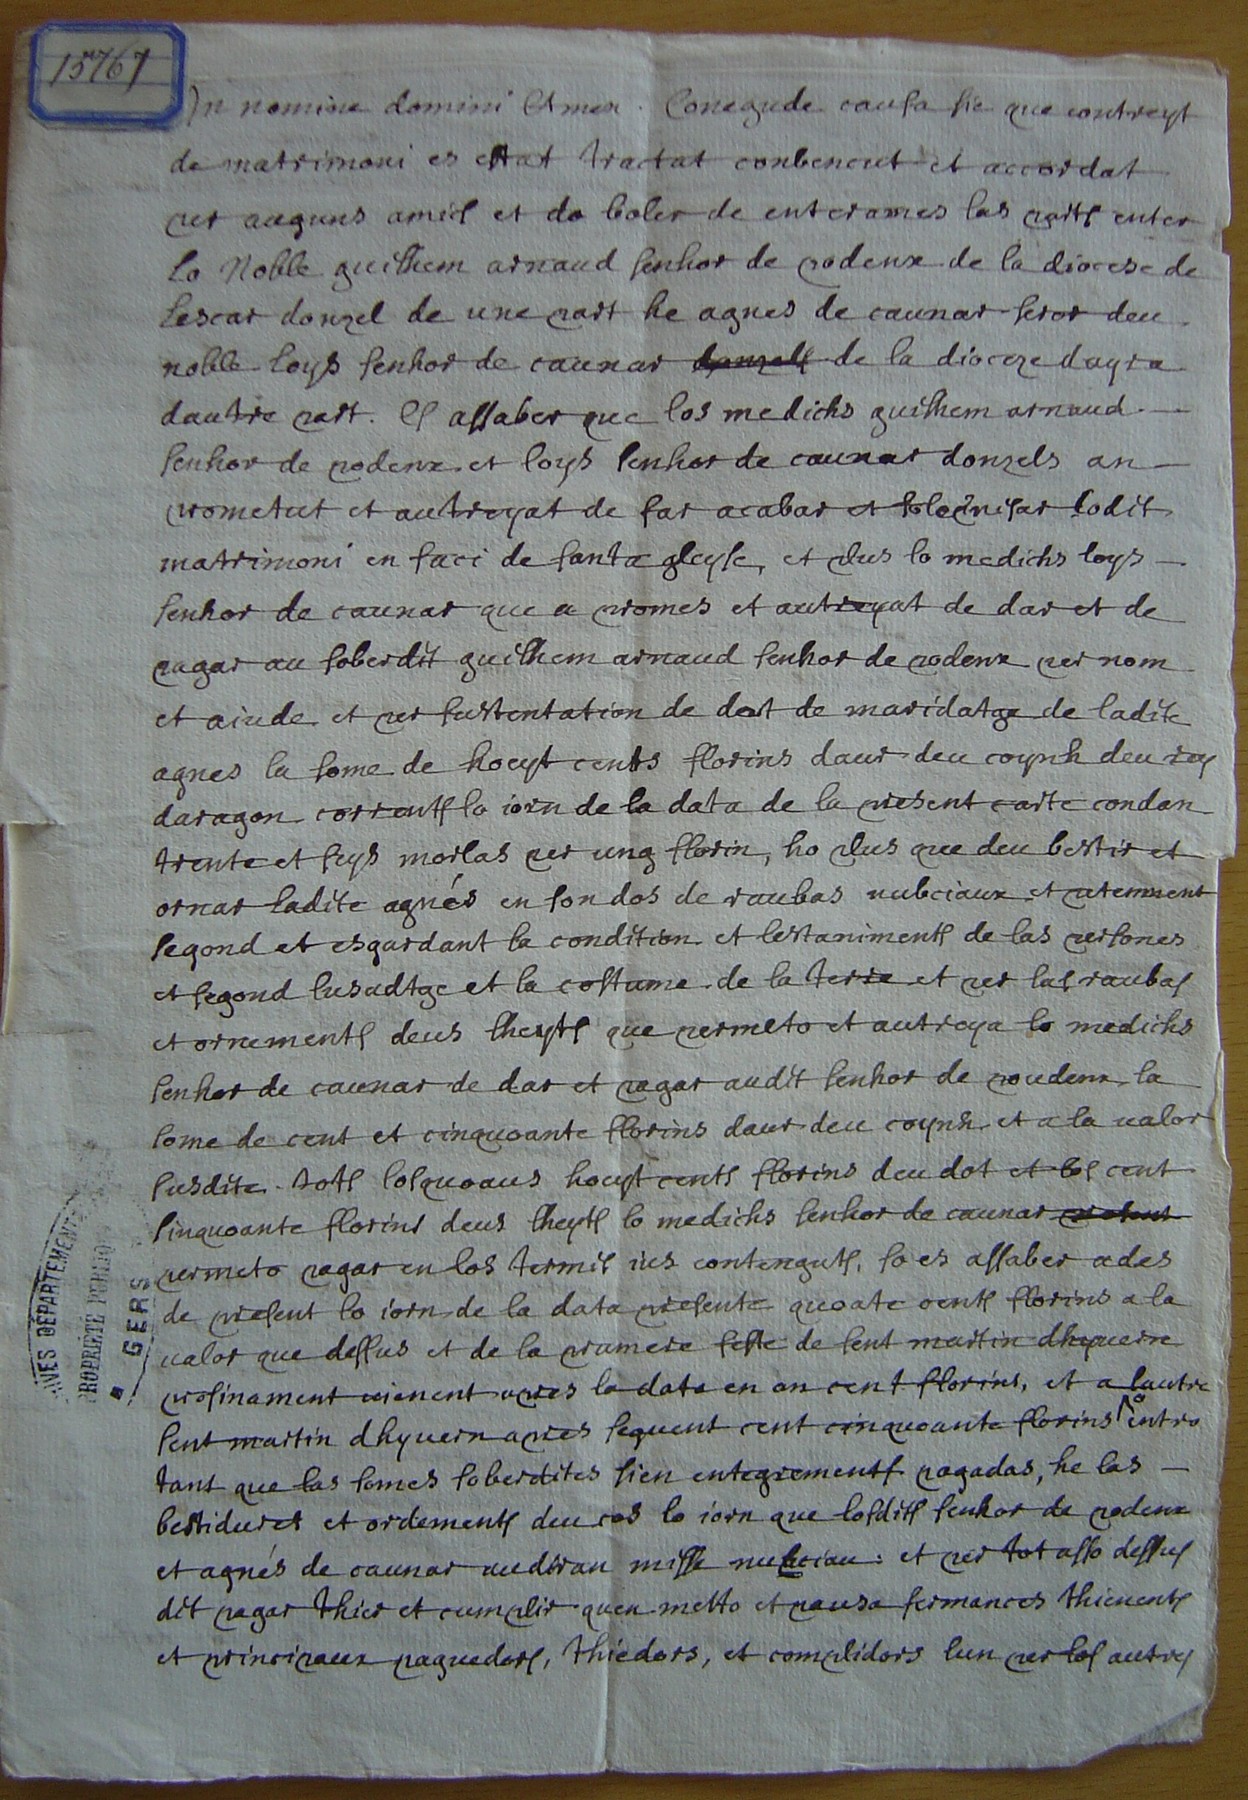 15767
In nomine domini Amen. Conegude causa sie que contreyt
de matrimoni es estat tractat conbencut et accordat
per auguns amics et da boler de enterames las parts enter
Lo Noble guilhem arnaud senhor de podenx de la diocese de
Lescar donzel de une part he agnes de caunar seror deu
noble loys senhor de caunar donzels de la dioceze dayra
dautre part. Es assaber que los medichs guilhem arnaud
senhor de podenx et loys senhor de caunar donzels an
prometut et autreyat de far acabar et solempnisar lodit
matrimoni en faci de santa gleyse, et plus lo medichs loys
senhor de caunar que a promes et autreyat de dar et de
pagar au soberdit guilhem arnaud senhor de podenx per nom
et aiude et per sustentation de dot de maridatge de ladite
agnes la some de hoeyt cents florins daur deu coynh deu rey
daragon corrents lo iorn de la data de la present carte condan
trente et seys morlas per ung florin, ho plus que deu bestir et
ornar ladite agnés en son dos de raubas nubciaux et
segond et esgardant la condition et lestaniments de las persones
et segond lusadtge et la costume de la terre et per las raubas
et ornements deus lheyts que permeto et autreya lo medichs
senhor de caunar de dar et pagar audit senhor de poudenx la
some de cent et cinquoante florins daur deu coynh et a la valor
susdite. tots losquoaus hoeyt cents florins deu dot et los cent
sinquoante florins deus lheyts lo medichs senhor de caunar present
permeto pagar en los termis jus contenguts, so es assaber ades
de present lo iorn de la data presente quoate cents florins a la
valor que dessus et de la prumere feste de sent martin dhyuern
prosinament vienent apres la data en an cent florins, et a lautre
sent martin dhyuern apres seguent cent cinquoante florins entro
tant que las somes soberdites sien entegrements pagadas, he las
bestidures et ordements deu cos lo iorn que losdits senhor de podenx
et agnés de caunar audiran misse nubciau: et per tot asso dessus
dit pagar thier et cumplir quen metto et pausa fermances thienents
et principaux paguedors, thiedors, et complidors lun per los autres
ARCHIVES DÉPARTEMENTALES
PROPRIÉTÉ PUBLIQUE
GERS